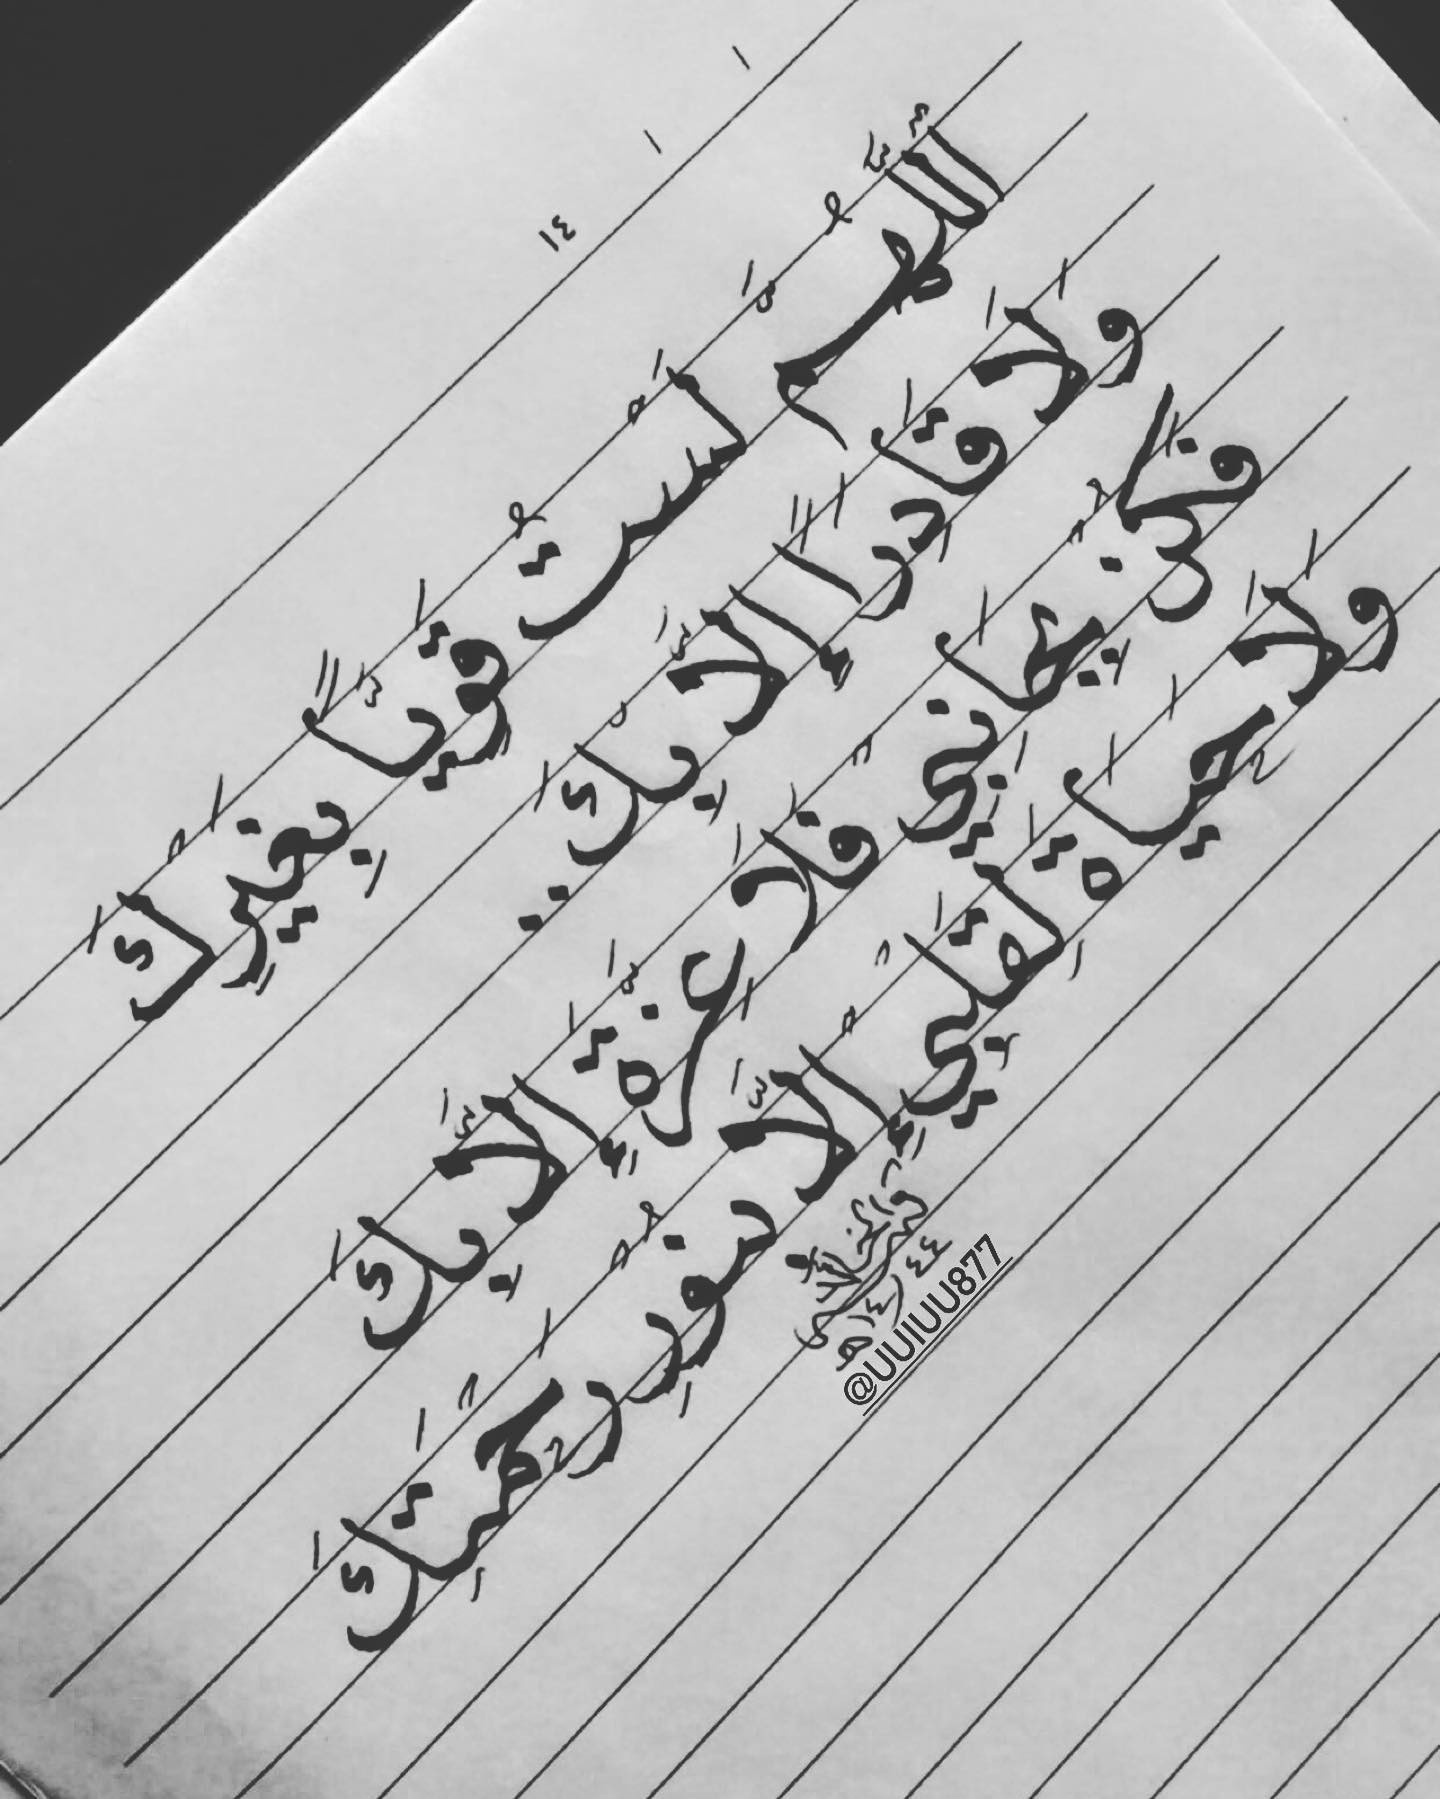 ١٤ / /
اللَّهُمَّ لَسْتُ قَوِيًّا بِغَيْرِكَ
وَلَا قَادِرًا إِلَّا بِكَ..
فَكُنْ بِجَانِبِي فَلَا عِزَّةَ إِلَّا بِكَ
وَلَا حَيَاةَ لِقَلْبِي إِلَّا بِنُورِ رَحْمَتِكَ
١٤٤٤هـ
@UUIUU877